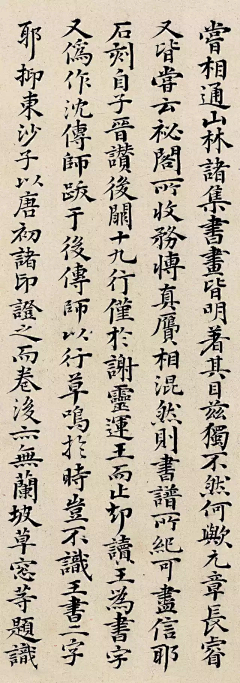 嘗相通山林諸集書畫皆明著其目茲獨不然何歟元章長睿
又皆嘗云祕閣所收務慱真贗相混然則書譜所紀可盡信耶
石刻自子晉讚後闕十九行僅於謝靈運王而止却讀王為書字
又僞作沈傳師跋于後傳師以行草鳴於時豈不識王書二字
耶抑東沙子以唐初諸印證之而卷後亦無蘭坡草窓等題識